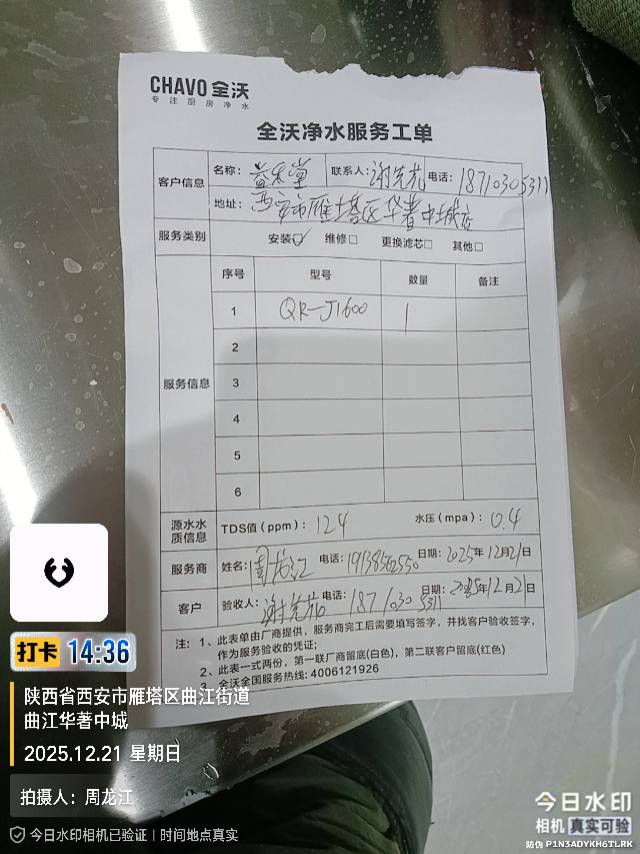 CHAVO 全沃
专注厨房净水
全沃净水服务工单
客户信息 名称: 益禾堂 联系人: 谢先花 电话: 18710305311
地址: 西安市雁塔区华著中城店
服务类别 安装☑ 维修□ 更换滤芯□ 其他□
服务信息 序号 型号 数量 备注
1 QR-J1600 1
2
3
4
5
6
源水水质信息 TDS值(ppm): 124 水压(mpa): 0.4
服务商 姓名: 周龙江 电话: 19138562550 日期: 2025年12月21日
客户 验收人: 谢先花 电话: 18710305311 日期: 2025年12月21日
注: 1、此表单由厂商提供,服务商完工后需要填写签字,并找客户验收签字,
作为服务验收的凭证;
2、此表一式两份,第一联厂商留底(白色),第二联客户留底(红色)
3、全沃全国服务热线: 4006121926
打卡 14:36
陕西省西安市雁塔区曲江街道
曲江华著中城
2025.12.21 星期日
拍摄人: 周龙江
今日水印相机已验证 | 时间地点真实
今日水印
相机 真实可验
防伪 P1N3ADYKH6TLRK